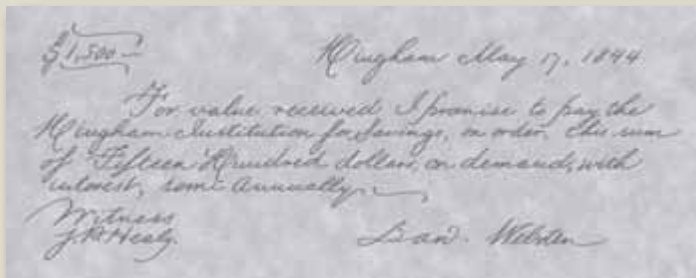 $1,500
Hingham May 17, 1844
For value received I promise to pay the
Hingham Institution for Savings, or order, the sum
of Fifteen Hundred dollars, on demand, with
interest, semi annually.
Witness